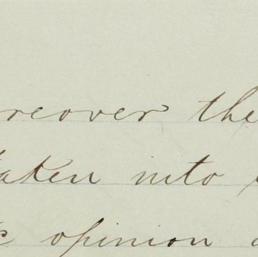 reover the
taken into
opinion